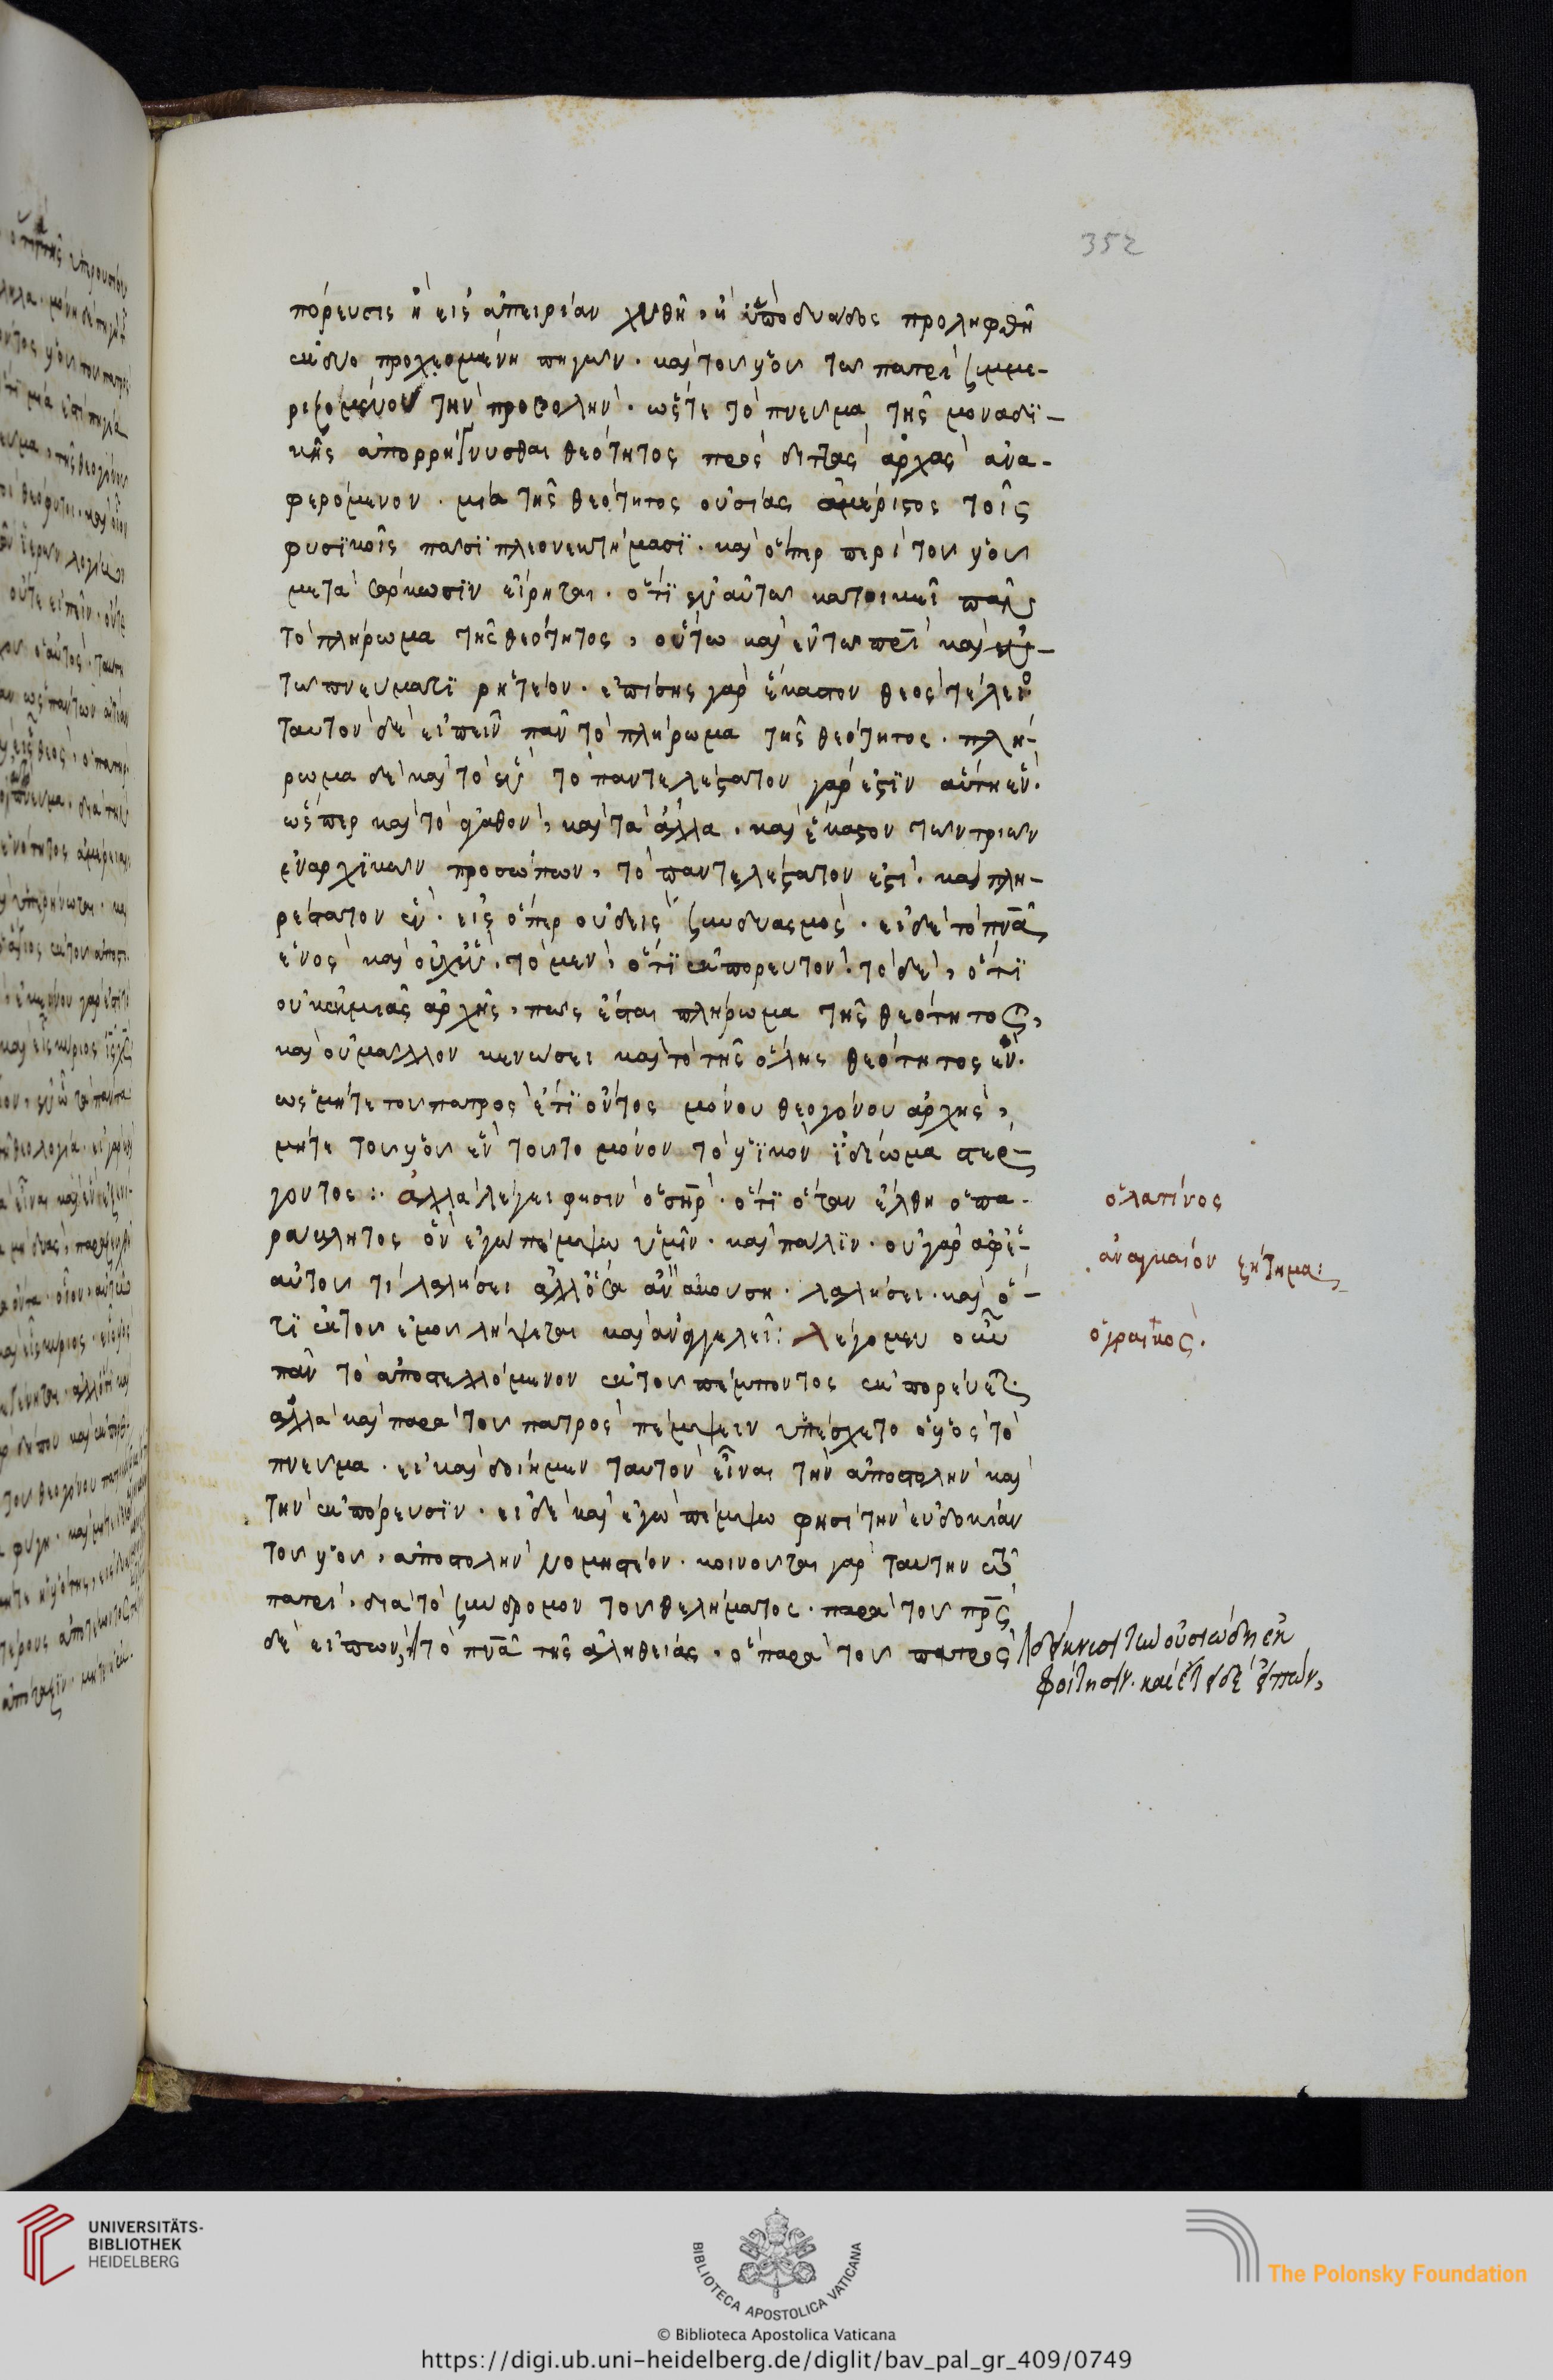 352
πόρευσις ἢ εἰς ἀπειρίαν χυθῆ. ἢ ὑπὸ δυάδος προληφθῆ
ἐκ δύο προχεομένη πηγῶν. καὶ τοῦ υἱοῦ τῶ πατρὶ συμμε-
ριζομένου τὴν προβολήν. ὥστε τὸ πνεῦμα τῆς μοναδϊ-
κῆς ἀπορρήγνυσθαι θεότητος πρὸς διττὰς ἀρχὰς ἀνα-
φερόμενον. μία τῆς θεότητος οὐσίας ἀμέριστος τοῖς
φυσϊκοῖς πᾶσϊ πλεονεκτήμασϊ. καὶ ὅπερ περὶ τοῦ υἱοῦ
μετὰ σάρκωσϊν εἴρηται. ὅτϊ ἐν αὐτῶ κατοικεῖ πᾶν
τὸ πλήρωμα τῆς θεότητος, οὕτω καὶ ἐν τῶ πρὶ καὶ ἐν
τῶ πνεύματϊ ῥητέον. ἐπίσης γὰρ ἕκαστον θεὸς τέλειος
ταυτὸν δὲ εἰπεῖν πᾶν τὸ πλήρωμα τῆς θεότητος. πλή-
ρωμα δὲ καὶ τὸ ἓν τὸ παντελέστατον γὰρ ἐστϊν αὕτη ἕν.
ὥσπερ καὶ τὸ ἀγαθὸν, καὶ τὰ ἄλλα. καὶ ἕκαστον τῶν τριῶν
ἐναρχϊκῶν προσώπων, τὸ παντελέστατον ἐστὶ. καὶ πλη-
ρέστατον ἕν. εἰς ὅπερ οὐδεὶς συνδυασμός. εἰ δὲ τὸ πνᾶ
ἑνὸς καὶ οὐχ ἓν. τὸ μὲν, ὅτϊ ἐκπορευτὸν. τὸ δὲ, ὅτϊ
οὐκ ἐκ μιᾶς ἀρχῆς, πῶς ἔσται πλήρωμα τῆς θεότητος,
καὶ οὐ μᾶλλον κενώσει καὶ τὸ τῆς ὅλης θεότητος ἕν.
ὡς μήτε τοῦ πατρὸς ἔτϊ ὄντος μόνου θεογόνου ἀρχῆς,
μήτε τοῦ υἱοῦ ἓν τοῦτο μόνον τὸ υἱϊκὸν ἰδίωμα στέρ-
γοντος: ἀλλὰ λέγει φησὶν ὁ σὴρ. ὅτϊ ὅταν ἔλθη ὁ πα-
ράκλητος ὃν ἐγὼ πέμψω ὑμῖν. καὶ πάλϊν. οὐ γὰρ ἀφ' ἑ-
αυτοῦ τὶ λαλήσει ἀλλ' ὅσα ἂν ἀκούση. λαλήσει. καὶ ὅ-
τϊ ἐκ τοῦ ἐμοῦ λήψεται καὶ ἀναγγελεῖ: λέγομεν
πᾶν τὸ ἀποστελλόμενον ἐκ τοῦ πέμποντος ἐκπορεύεται.
ἀλλὰ καὶ παρὰ τοῦ πατρὸς πέμψειν ὑπέσχετο ὁ υἱὸς τὸ
πνεῦμα. εἰ καὶ δοίημεν ταυτὸν εἶναι τὴν ἀποστολὴν καὶ
τὴν ἐκπόρευσϊν. εἰ δὲ καὶ ἐγὼ πέμψω φησὶ τὴν εὐδοκίαν
τοῦ υἱοῦ, ἀποστολὴν νομιστέον. κοινοῦται γὰρ ταύτην τῶ
πατρὶ. διὰ τὸ σύνδρομον τοῦ θελήματος. παρὰ τοῦ πρς
δὲ εἰπὼν, τὸ πνᾶ τῆς ἀληθείας. ὃ παρὰ τοῦ πατρὸς
ὁ λατίνος
ἀναγκαίον ζήτημα:
ὁ γραικὸς.
τὴν οὐσιώδη ἐκ
φοίτησιν. καὶ
UNIVERSITÄTS-
BIBLIOTHEK
HEIDELBERG
BIBLIOTECA APOSTOLICA VATICANA
The Polonsky Foundation
© Biblioteca Apostolica Vaticana
https://digi.ub.uni-heidelberg.de/diglit/bav_pal_gr_409/0749